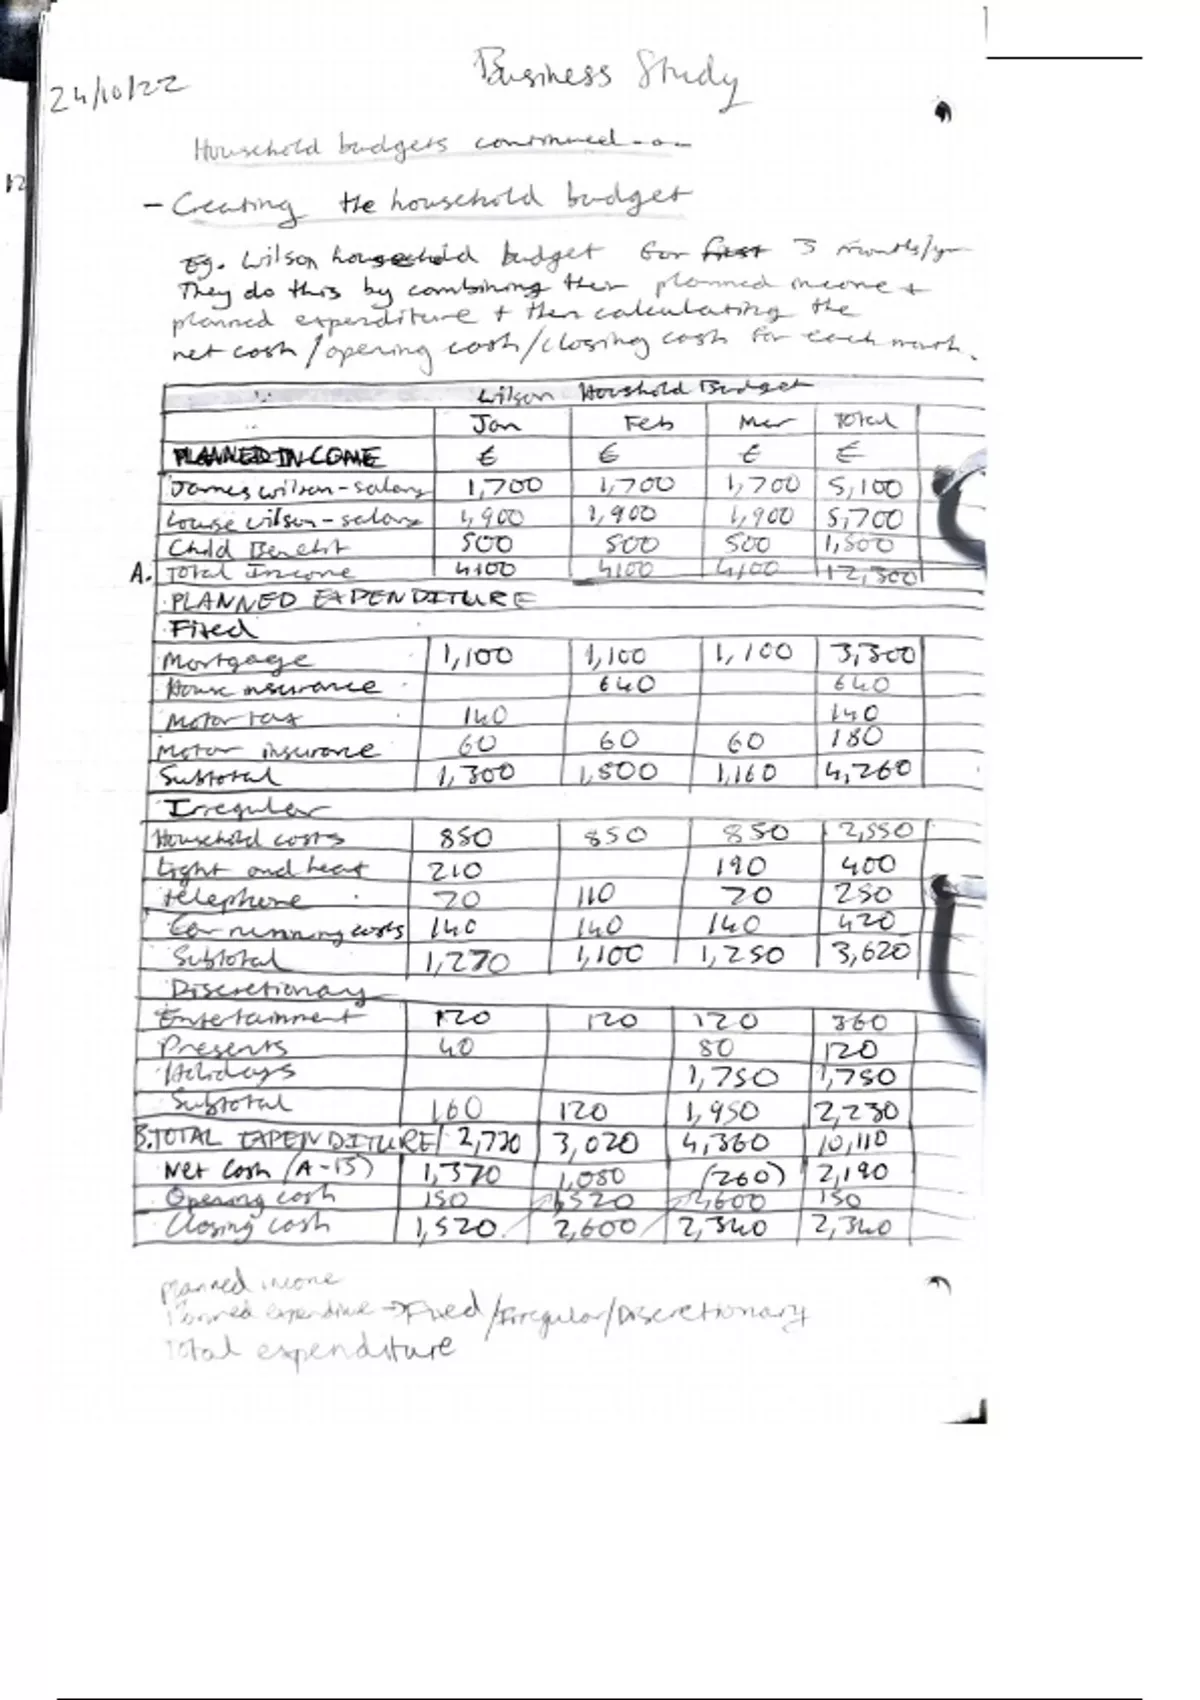 Business Study
24/10/22
12
Household budgets continued...
- Creating the household budget
Eg. Wilson household budget for first 3 months/yr
They do this by combining their planned income +
planned expenditure + then calculating the
net cash/opening cash/closing cash for each month.
Wilson Household Budget
Jan Feb Mar Total
PLANNED INCOME € € € €
James Wilson - salary 1,700 1,700 1,700 5,100
Louise Wilson - salary 1,900 1,900 1,900 5,700
Child Benefit 500 500 500 1,500
A. Total Income 4100 4100 4,100 12,300
PLANNED EXPENDITURE
Fixed
Mortgage 1,100 1,100 1,100 3,300
House insurance 640 640
Motor tax 140 140
Motor insurance 60 60 60 180
Subtotal 1,300 1,800 1,160 4,260
Irregular
Household costs 850 850 850 2,550
Light and heat 210 190 400
telephone 70 110 70 250
Car running costs 140 140 140 420
Subtotal 1,270 1,100 1,250 3,620
Discretionary
Entertainment 120 120 120 360
Presents 40 80 120
Holidays 1,750 1,750
Subtotal 160 120 1,950 2,230
B. TOTAL EXPENDITURE 2,730 3,020 4,360 10,110
Net Cash (A-B) 1,370 1,080 (260) 2,190
Opening cash 150 1,520 2,600 150
Closing cash 1,520 2,600 2,340 2,340
planned income
Planned expenditure → Fixed/Irregular/Discretionary
Total expenditure